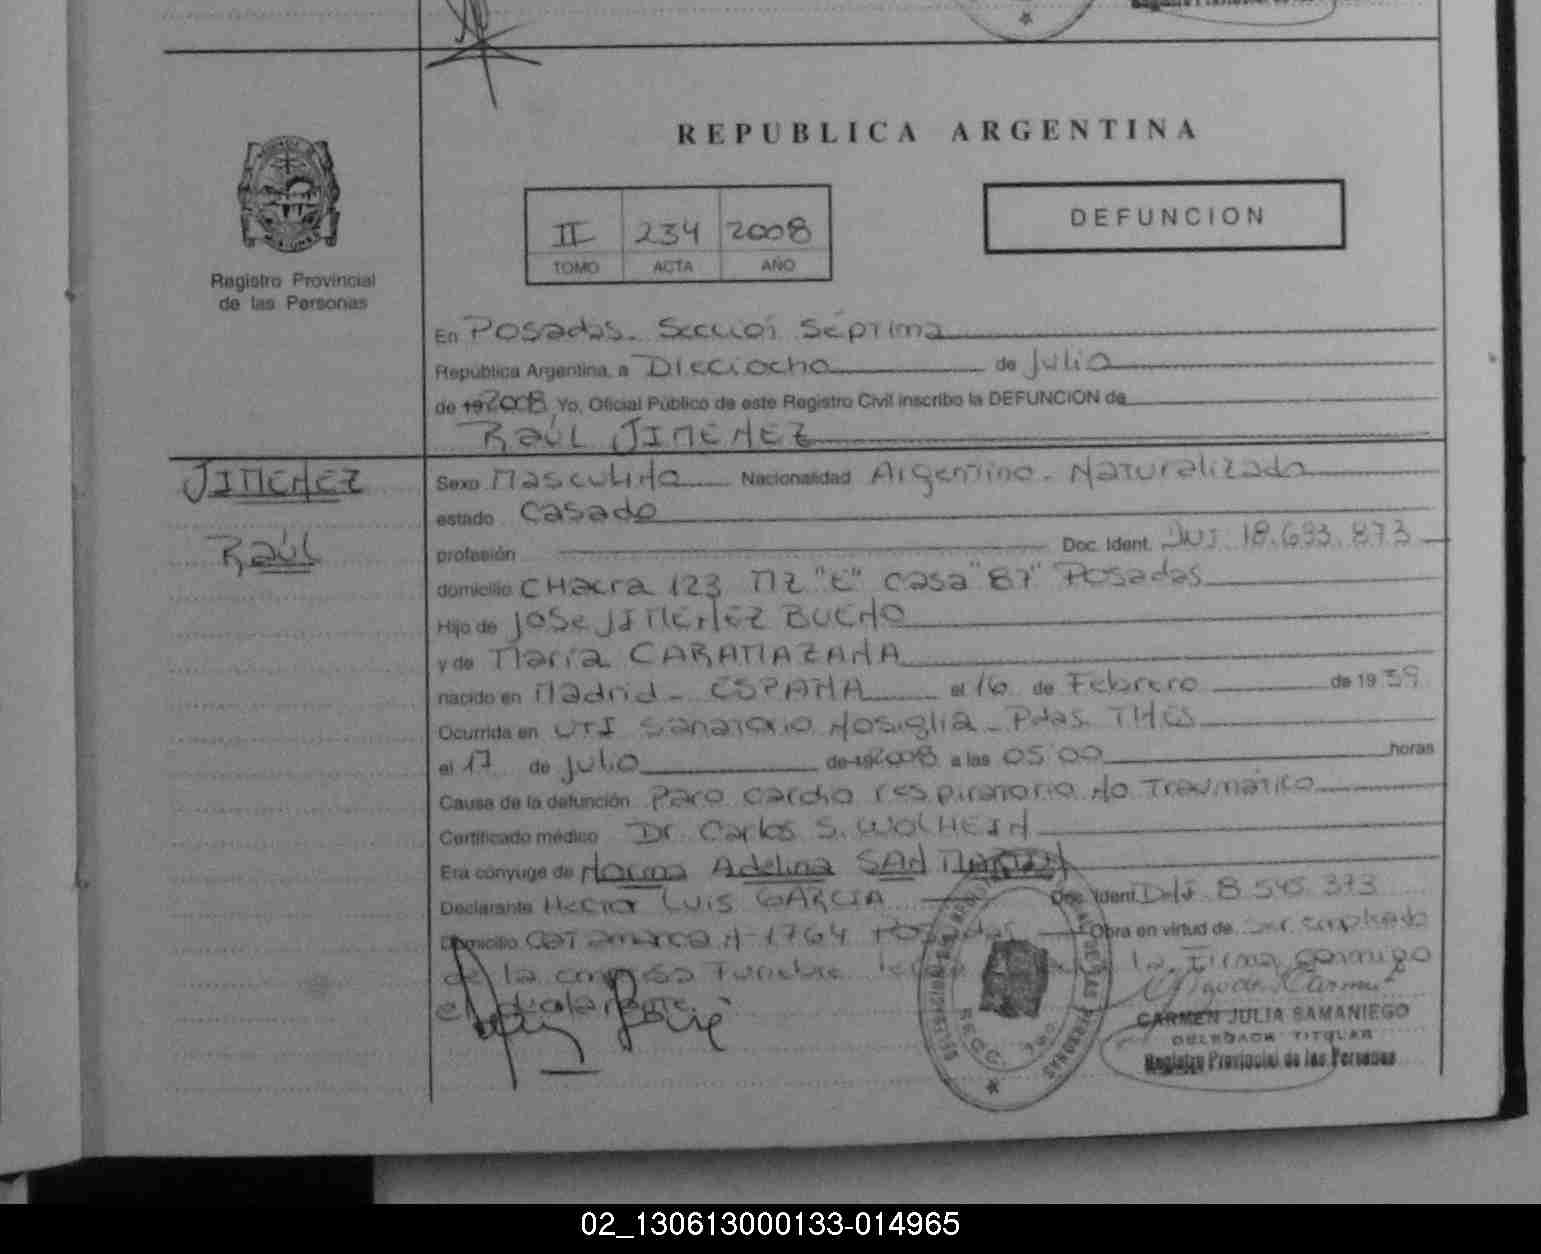 REPUBLICA ARGENTINA
II 234 2008
TOMO ACTA AÑO
DEFUNCION
Registro Provincial
de las Personas
En Posadas. Sección Séptima
República Argentina, a Dieciocho de Julio
de 19 2008 Yo, Oficial Público de este Registro Civil inscribo la DEFUNCION de
RAÚL JIMENEZ
JIMENEZ
RAÚL
Sexo Masculino Nacionalidad Argentino - Naturalizado
estado Casado
profesión Doc. Ident. DNI 18.693.873
domicilio CHacra 123 MZ "E" Casa "87" Posadas
Hijo de José JIMENEZ BUENO
y de María CARAMAZANA
nacido en Madrid - ESPAÑA el 16 de Febrero de 1939
Ocurrida en UTI Sanatorio Nosiglia - Pdas. Mnes
el 17 de julio de 19 2008 a las 05:00 horas
Causa de la defunción Paro cardio respiratorio no Traumático
Certificado médico Dr. Carlos S. WOLHEIN
Era cónyuge de Norma Adelina SAN MARTIN
Declarante Hector Luis GARCIA Doc. Ident. DNI 8.545.373
Domicilio Catamarca N° 1764 Posadas Obra en virtud de Ser empleado
de la empresa Funebre la Firma conmigo
el declarante.
CARMEN JULIA SAMANIEGO
DELEGADA TITULAR
Registro Provincial de las Personas
02_130613000133-014965